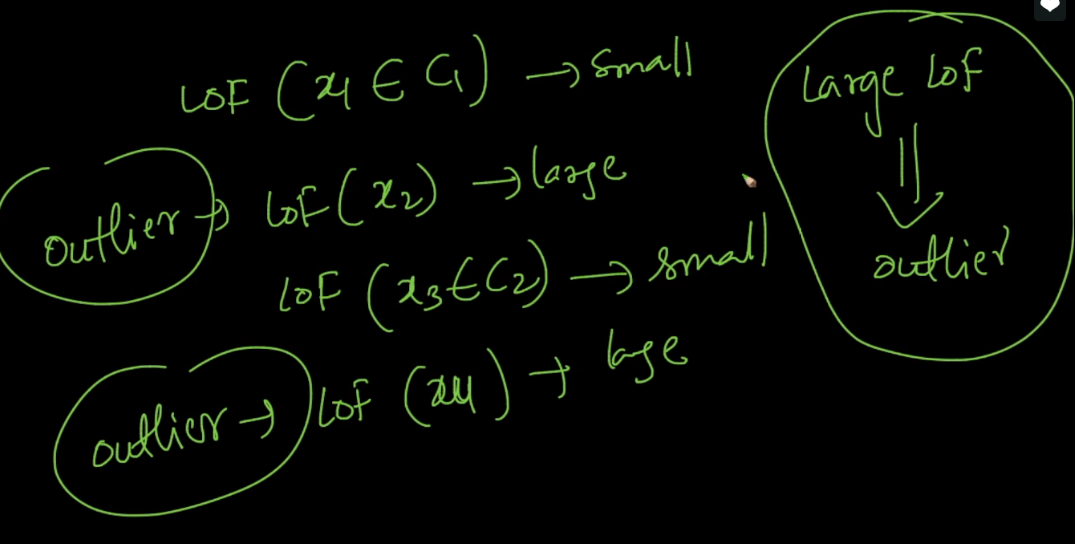 LOF (x1 ∈ C1) → small
outlier → LOF (x2) → large
LOF (x3 ∈ C2) → small
outlier → LOF (x4) → large
Large LOF
⇓
outlier